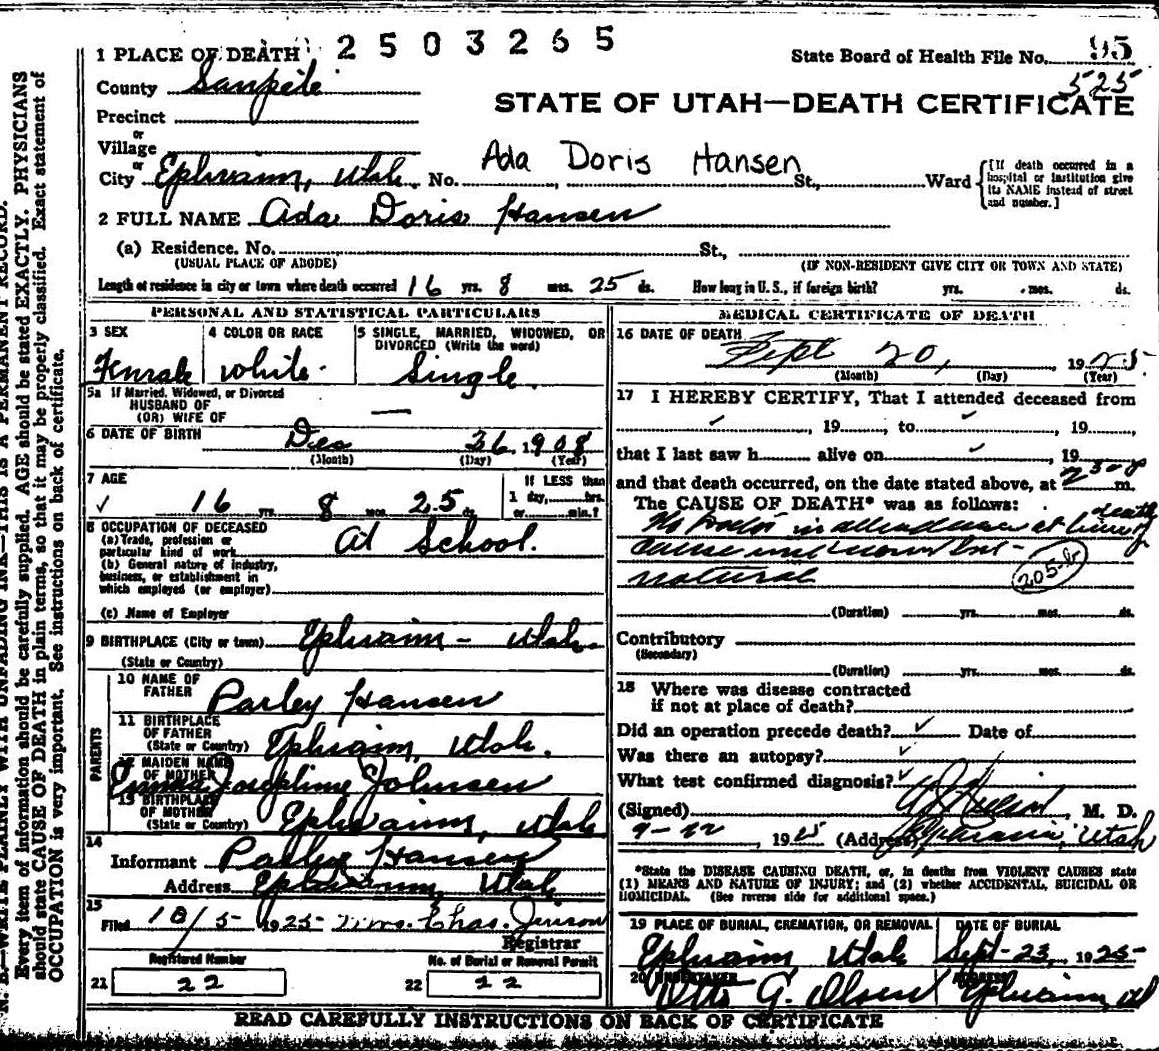 1 PLACE OF DEATH 2503265
State Board of Health File No. 95
525
County Sanpete
STATE OF UTAH—DEATH CERTIFICATE
Precinct
or
Village
or
Ada Doris Hansen
City Ephraim, Utah. No. , St., Ward
[If death occurred in a hospital or institution give its NAME instead of street and number.]
2 FULL NAME Ada Doris Hansen
(a) Residence. No. St.,
(USUAL PLACE OF ABODE) (IF NON-RESIDENT GIVE CITY OR TOWN AND STATE)
Length of residence in city or town where death occurred 16 yrs. 8 mos. 25 ds. How long in U.S., if foreign birth? yrs. mos. ds.
PERSONAL AND STATISTICAL PARTICULARS
3 SEX
Female
4 COLOR OR RACE
White
5 SINGLE, MARRIED, WIDOWED, OR
DIVORCED (Write the word)
Single.
5a If Married, Widowed, or Divorced
HUSBAND OF
(OR) WIFE OF —
6 DATE OF BIRTH Dec 1908
(Month) (Day) (Year)
7 AGE
16 yrs. 8 25 ds.
If LESS than
1 day, hrs.
or min.?
8 OCCUPATION OF DECEASED
(a) Trade, profession or
particular kind of work At School.
(b) General nature of industry,
business, or establishment in
which employed (or employer)
(c) Name of Employer
9 BIRTHPLACE (City or town) Ephraim - Utah.
(State or Country)
PARENTS
10 NAME OF
FATHER Parley Hansen
11 BIRTHPLACE
OF FATHER
(State or Country) Ephraim, Utah.
12 MAIDEN NAME
OF MOTHER Emma Josephine Johnsen
13 BIRTHPLACE
OF MOTHER
(State or Country) Ephraim, Utah
14
Informant Parley Hansen
Address Ephraim, Utah
15
Filed 10/5 1925- Mrs. Chas. Jenson
Registrar
Registered Number
21 22
No. of Burial or Removal Permit
22 22
MEDICAL CERTIFICATE OF DEATH
16 DATE OF DEATH
Sept 20, 1925
(Month) (Day) (Year)
17 I HEREBY CERTIFY, That I attended deceased from
, 19 to , 19
that I last saw h alive on , 19
and that death occurred, on the date stated above, at m.
The CAUSE OF DEATH* was as follows:
No Doctor in attendance at time of death
cause unknown but -
natural
205-b
(Duration) yrs. mos. ds.
Contributory
(Secondary)
(Duration) yrs. mos. ds.
18 Where was disease contracted
if not at place of death?
Did an operation precede death? Date of
Was there an autopsy?
What test confirmed diagnosis?
(Signed) , M. D.
9-22 1925 (Address) Ephraim, Utah
*State the DISEASE CAUSING DEATH, or, in deaths from VIOLENT CAUSES state
(1) MEANS AND NATURE OF INJURY; and (2) whether ACCIDENTAL, SUICIDAL OR
HOMICIDAL. (See reverse side for additional space.)
19 PLACE OF BURIAL, CREMATION, OR REMOVAL
Ephraim Utah
DATE OF BURIAL
Sept-23, 1925-
20 UNDERTAKER
Otto G. Olsen
ADDRESS
Ephraim, Ut
READ CAREFULLY INSTRUCTIONS ON BACK OF CERTIFICATE
N. B.—WRITE PLAINLY WITH UNFADING INK—THIS IS A PERMANENT RECORD.
Every item of information should be carefully supplied. AGE should be stated EXACTLY. PHYSICIANS
should state CAUSE OF DEATH in plain terms, so that it may be properly classified. Exact statement of
OCCUPATION is very important. See instructions on back of certificate.